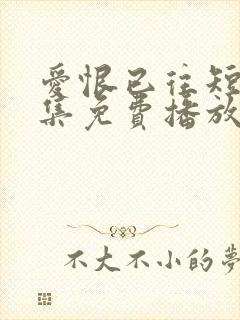 愛恨已往短
集免費播放
不大不小的夢